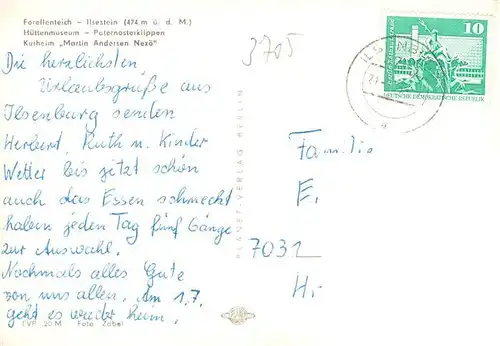 Forellenteich - Ilsestein (474 m ü. d. M.)
Hüttenmuseum - Paternosterklippen
Kurheim „Martin Andersen Nexö"
3705
Die herzlichsten
Urlaubsgrüße aus
Ilsenburg senden
Herbert, Ruth u. Kinder
Wetter bis jetzt schön
auch das Essen schmeckt
haben jeden Tag fünf Gänge
zur Auswahl.
Nochmals alles Gute
von uns allen. Am 1.7.
geht es wieder heim.
EVP -,20 M Foto: Zobel
PLANET-VERLAG BERLIN
10
DEUTSCHE DEMOKRATISCHE REPUBLIK
Familie
E.
7031
Hi-